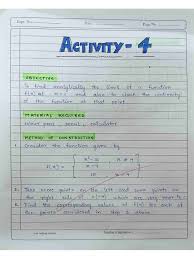 ACTIVITY - 4
OBJECTIVE
To find analytically the limit of a function
f(x) at x = c and also to check the continuity
of the function at that point.
MATERIAL REQUIRED
paper, pencil, calculator
METHOD OF CONSTRUCTION
1. Consider the function given by
f(x) = x² - 16 / x - 4 x ≠ 4
10 x = 4
2. Take some points on the left and some points on
the right side of which are very near to
3. Find the corresponding values of f(x) for each of
the points considered in step 2 above